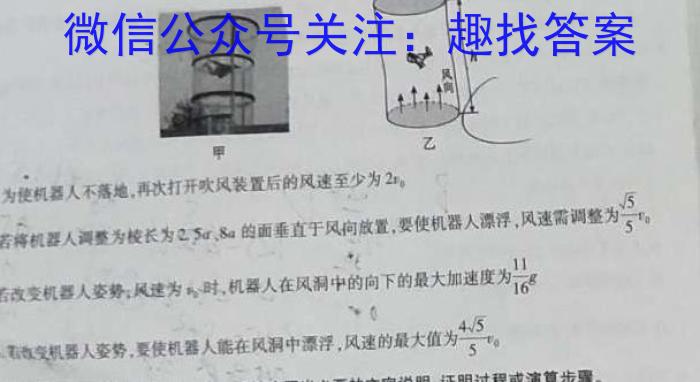 微信公众号关注：趣找答案
h
风向
甲
乙
为使机器人不落地,再次打开吹风装置后的风速至少为2v₀
若将机器人调整为棱长为2.5a、8a的面垂直于风向放置,要使机器人漂浮,风速需调整为√5/5 v₀
若改变机器人姿势,风速为v₀时,机器人在风洞中的向下的最大加速度为11/16 g
若改变机器人姿势,要使机器人能在风洞中漂浮,风速的最大值为4√5/5 v₀
说明、证明过程或演算步骤。